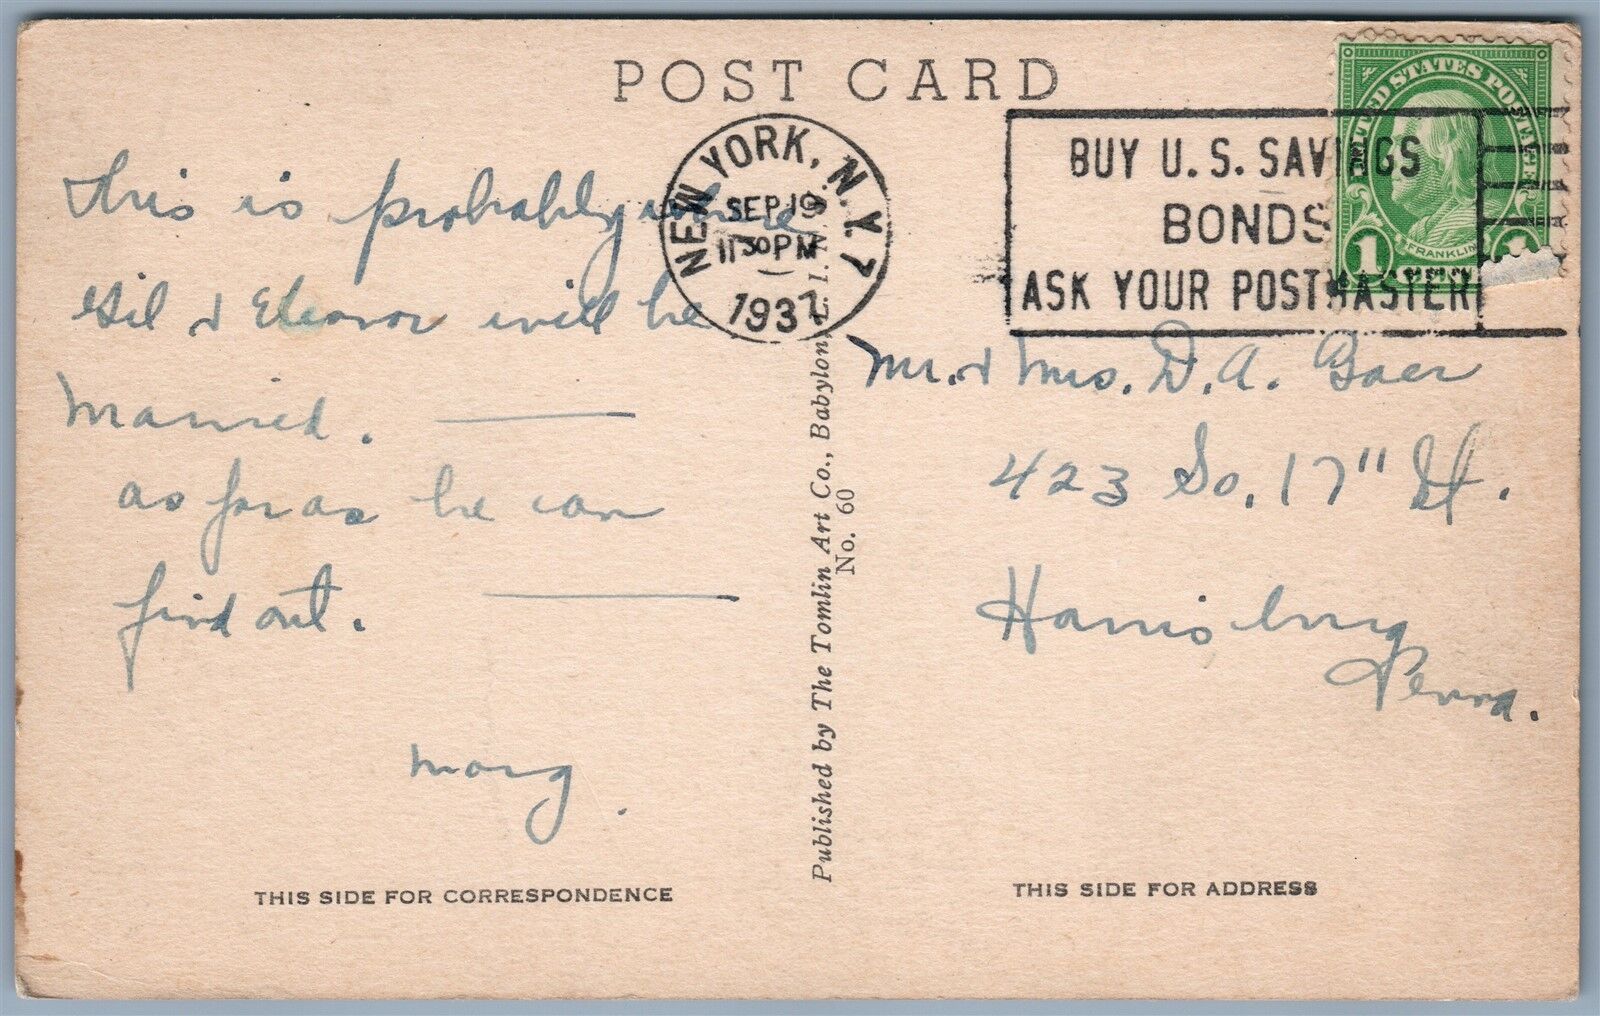 POST CARD
NEW YORK, N.Y. 7
SEP 19
11 30 PM
1937
BUY U.S. SAVINGS
BONDS
ASK YOUR POSTMASTER
UNITED STATES POSTAGE
FRANKLIN
1 CENT 1
This is probably where
Gil & Eleanor will be
Married.
as far as he can
find out.
Marg.
Published by The Tomlin Art Co., Babylon, L. I., N. Y.
No. 60
Mr. & Mrs. D. A. Baer
423 So. 17" St.
Harrisburg
Penna.
THIS SIDE FOR CORRESPONDENCE
THIS SIDE FOR ADDRESS